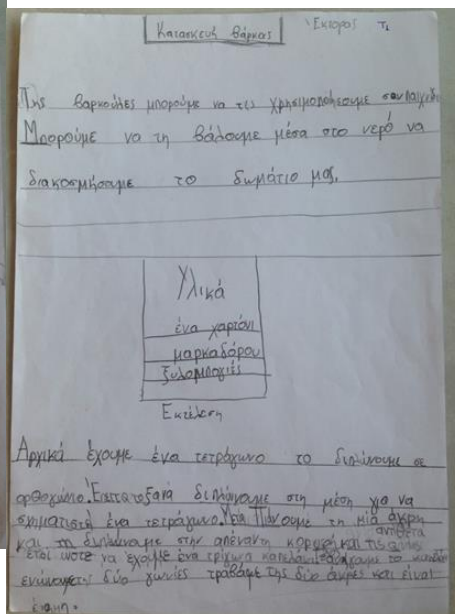 Κατασκευή βάρκας
Έκτορας Τι
Της βαρκούλες μπορούμε να τις χρησιμοποιήσουμε σαν παιχνίδι
Μπορούμε να τη βάλουμε μέσα στο νερό να
διακοσμήσουμε το δωμάτιο μας.
Υλικά
ένα χαρτόνι
μαρκαδόρου
ξυλομπογιές
Εκτέλεση
Αρχικά έχουμε ένα τετράγωνο το διπλώνουμε σε
ορθογώνιο. Έπειτα το ξανά διπλώνουμε στη μέση για να
σχηματιστεί ένα τετράγωνο. Πιάνουμε τη μία άκρη
και τη διπλώνουμε στην απέναντη κορυφή και τις άλλες αντίθετα
έτσι ώστε να έχουμε ένα τρίγωνο
ενώνουμε της δύο γωνίες τραβάμε της δύο άκρες και είναι
έτοιμη.